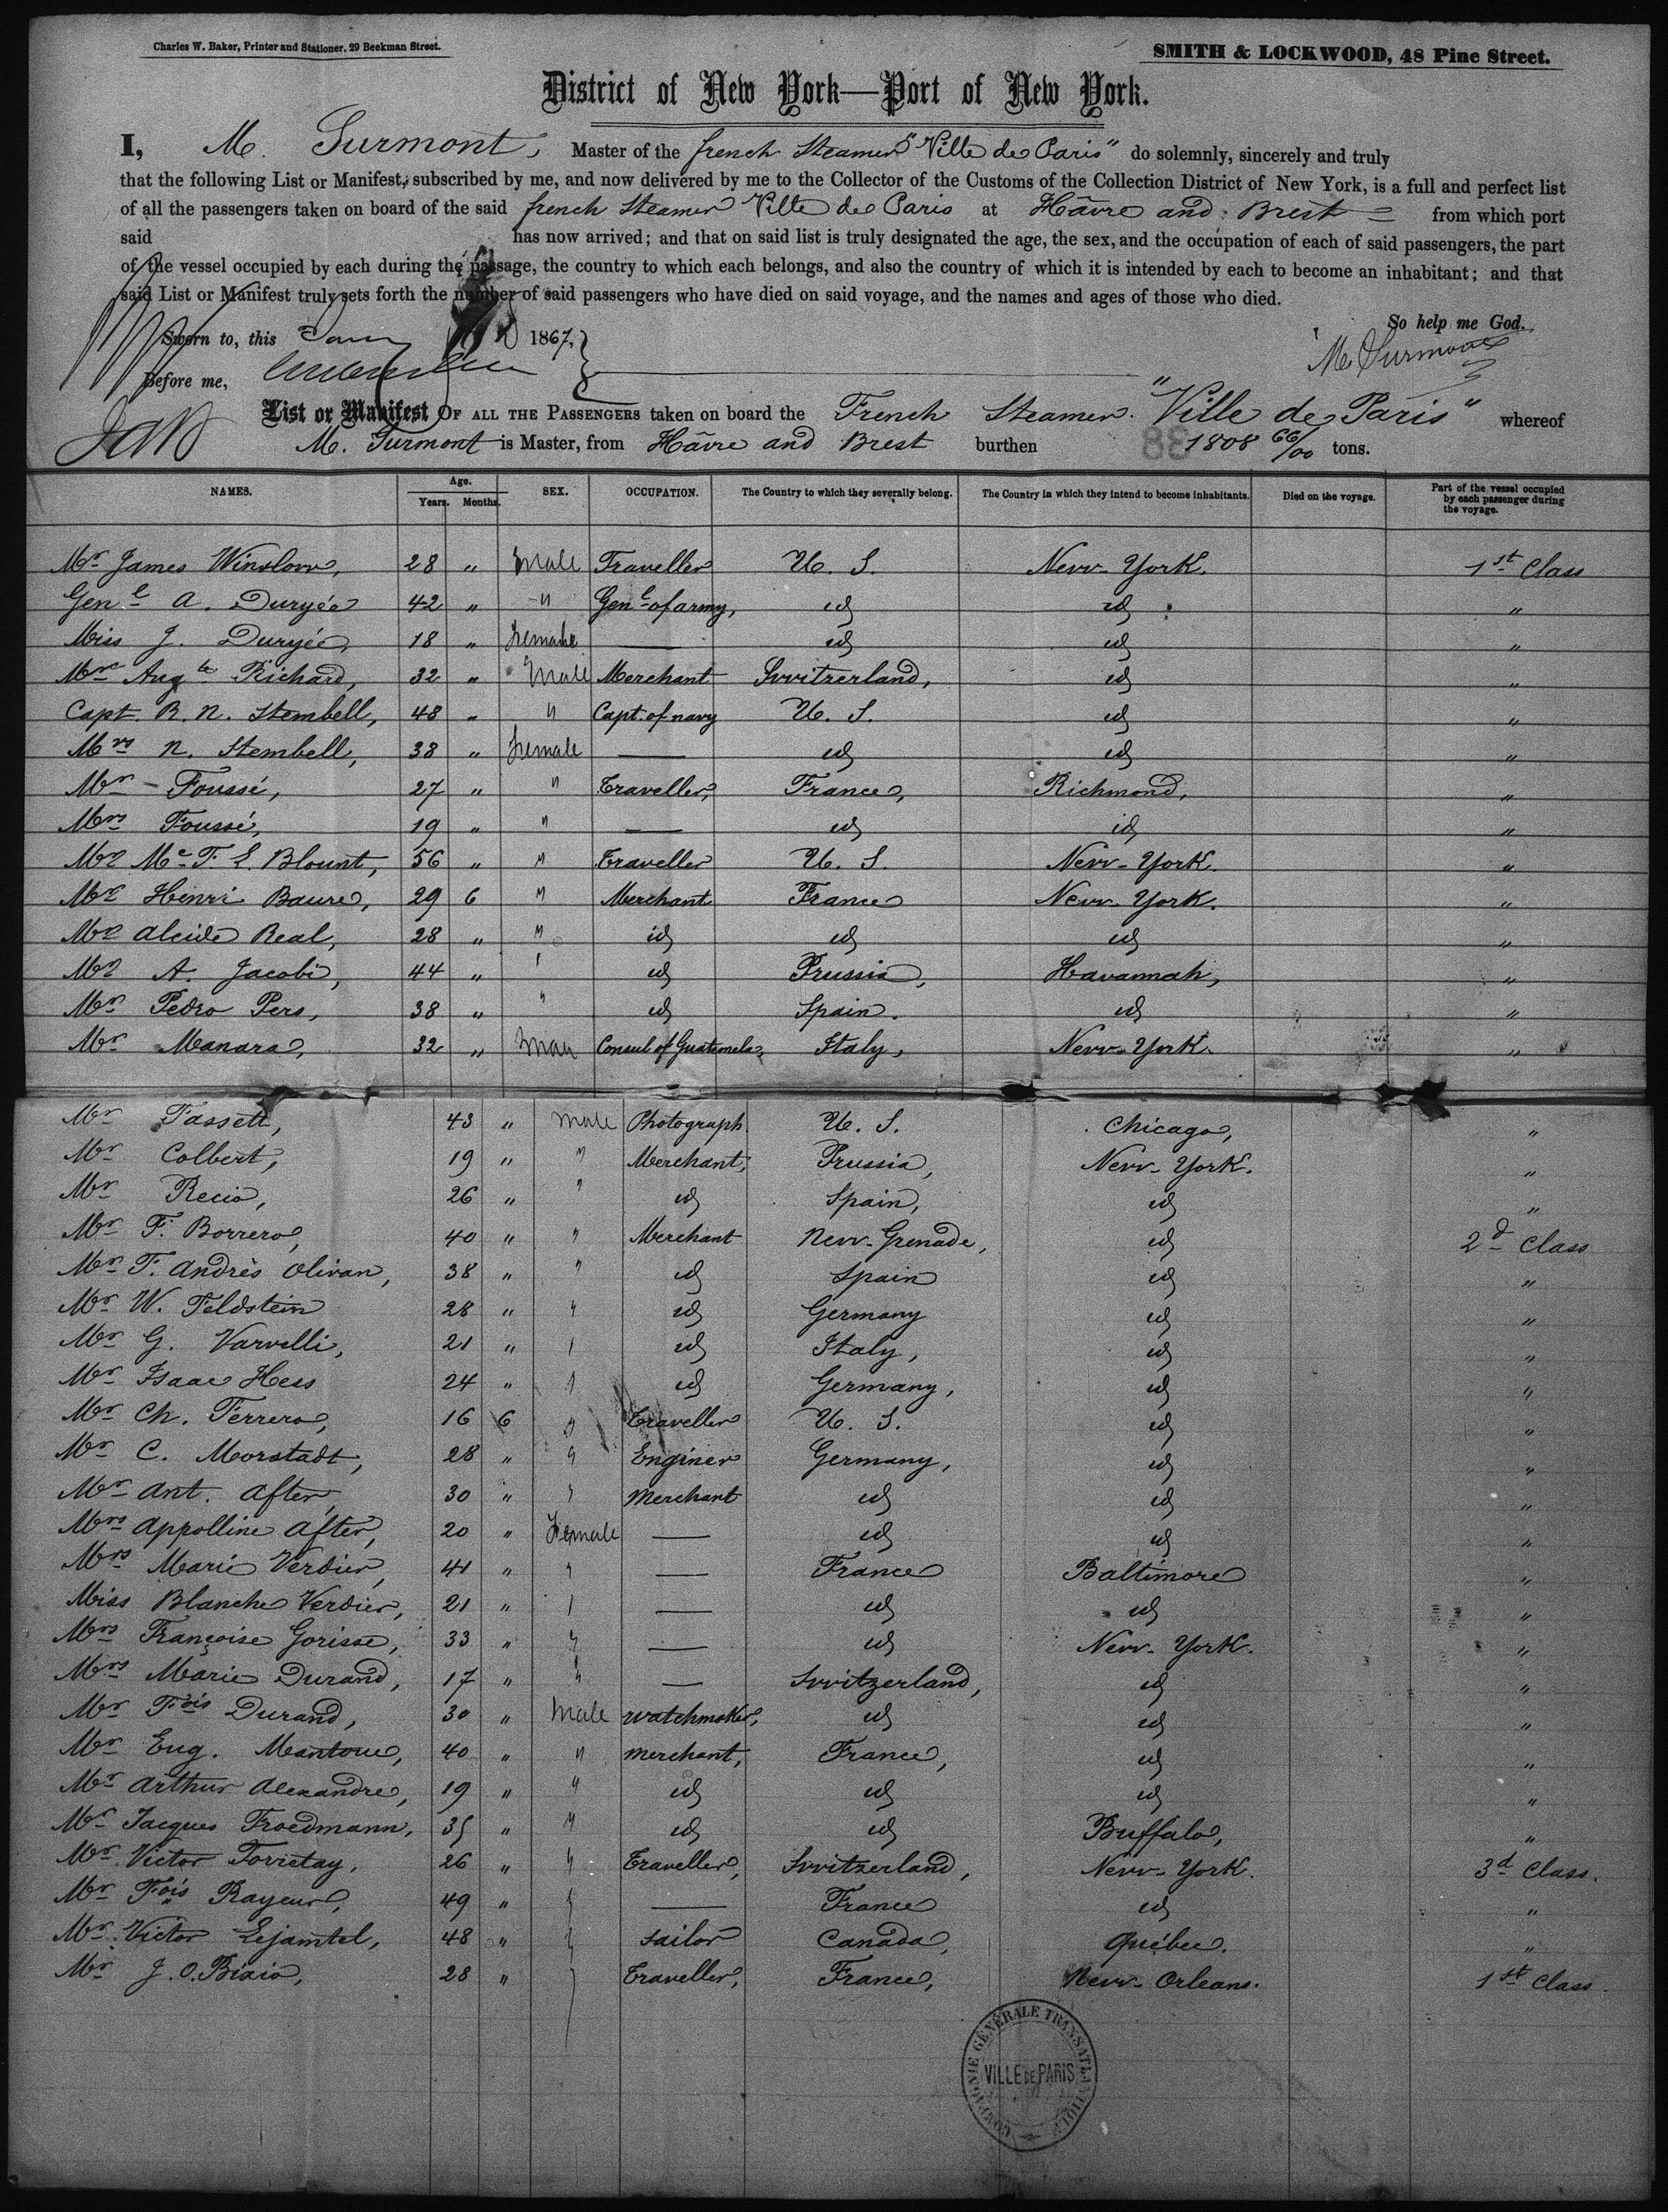 Charles W. Baker, Printer and Stationer, 29 Beekman Street.
SMITH & LOCKWOOD, 48 Pine Street.
District of New York—Port of New York.
I, M. Surmont, Master of the french Steamer "Ville de Paris" do solemnly, sincerely and truly
that the following List or Manifest, subscribed by me, and now delivered by me to the Collector of the Customs of the Collection District of New York, is a full and perfect list
of all the passengers taken on board of the said french Steamer Ville de Paris at Hâvre and Brest from which port
said has now arrived; and that on said list is truly designated the age, the sex, and the occupation of each of said passengers, the part
of the vessel occupied by each during the passage, the country to which each belongs, and also the country of which it is intended by each to become an inhabitant; and that
said List or Manifest truly sets forth the number of said passengers who have died on said voyage, and the names and ages of those who died.
So help me God.
Sworn to, this 1867,
M Surmont
Before me,
List or Manifest OF ALL THE PASSENGERS taken on board the French Steamer "Ville de Paris" whereof
M. Surmont is Master, from Hâvre and Brest burthen 1808 66/00 tons.
NAMES. Age. Years. Months. SEX. OCCUPATION. The Country to which they severally belong. The Country in which they intend to become inhabitants. Died on the voyage. Part of the vessel occupied by each passenger during the voyage.
Mr James Winslow, 28 " Male Traveller U. S. New-York. 1st Class
Genl A. Duryée 42 " " Genl of army, id id "
Miss J. Duryée, 18 " Female — id id "
Mr Augte Richard, 32 " Male Merchant Switzerland, id "
Capt. R. N. Stembell, 48 " " Capt. of navy U. S. id "
Mrs N. Stembell, 38 " Female — id id "
Mr - Foussé, 27 " " Traveller, France, Richmond, "
Mrs Foussé, 19 " " — id id "
Mr Mc F. L. Blount, 56 " " Traveller U. S. New-York. "
Mr Henri Baure, 29 6 " Merchant France New-York. "
Mr Alcide Real, 28 " " id id id "
Mr A. Jacobi, 44 " " id Prussia, Havannah, "
Mr Pedro Pers, 38 " " id Spain. id "
Mr Manara, 32 " Man Consul of Guatemala, Italy, New-York. "
Mr Fassett, 43 " Male Photograph. U. S. Chicago, "
Mr Colbert, 19 " " Merchant, Prussia, New-York. "
Mr Recio, 26 " " id Spain, id "
Mr F. Borrero, 40 " " Merchant New-Grenade, id 2d Class
Mr F. Andrès Olivan, 38 " " id Spain id "
Mr W. Feldstein 28 " " id Germany id "
Mr G. Varvelli, 21 " " id Italy, id "
Mr Isaac Hess 24 " " id Germany, id "
Mr Ch. Ferrero, 16 6 " Traveller U. S. id "
Mr C. Morstadt, 28 " " Enginer Germany, id "
Mr Ant. After, 30 " " Merchant id id "
Mrs Appolline After, 20 " Female — id id "
Mrs Marie Verdier, 41 " " — France Baltimore "
Miss Blanche Verdier, 21 " " — id id "
Mrs Françoise Gorisse, 33 " " — id New-York. "
Mrs Marie Durand, 17 " " — Switzerland, id "
Mr Fois Durand, 30 " Male watchmaker, id id "
Mr Eug. Mantoue, 40 " " merchant, France, id "
Mr Arthur Alexandre, 19 " " id id id "
Mr Jacques Froedmann, 35 " " id id Buffalo, "
Mr Victor Torretay, 26 " " Traveller, Switzerland, New-York. 3d Class.
Mr Fois Rayeur, 49 " " — France id "
Mr Victor Lejamtel, 48 " " Sailor Canada, Québec. "
Mr J. O. Bixio, 28 " " Traveller, France, New-Orleans. 1st Class.
COMPAGNIE GÉNÉRALE TRANSATLANTIQUE
VILLE DE PARIS